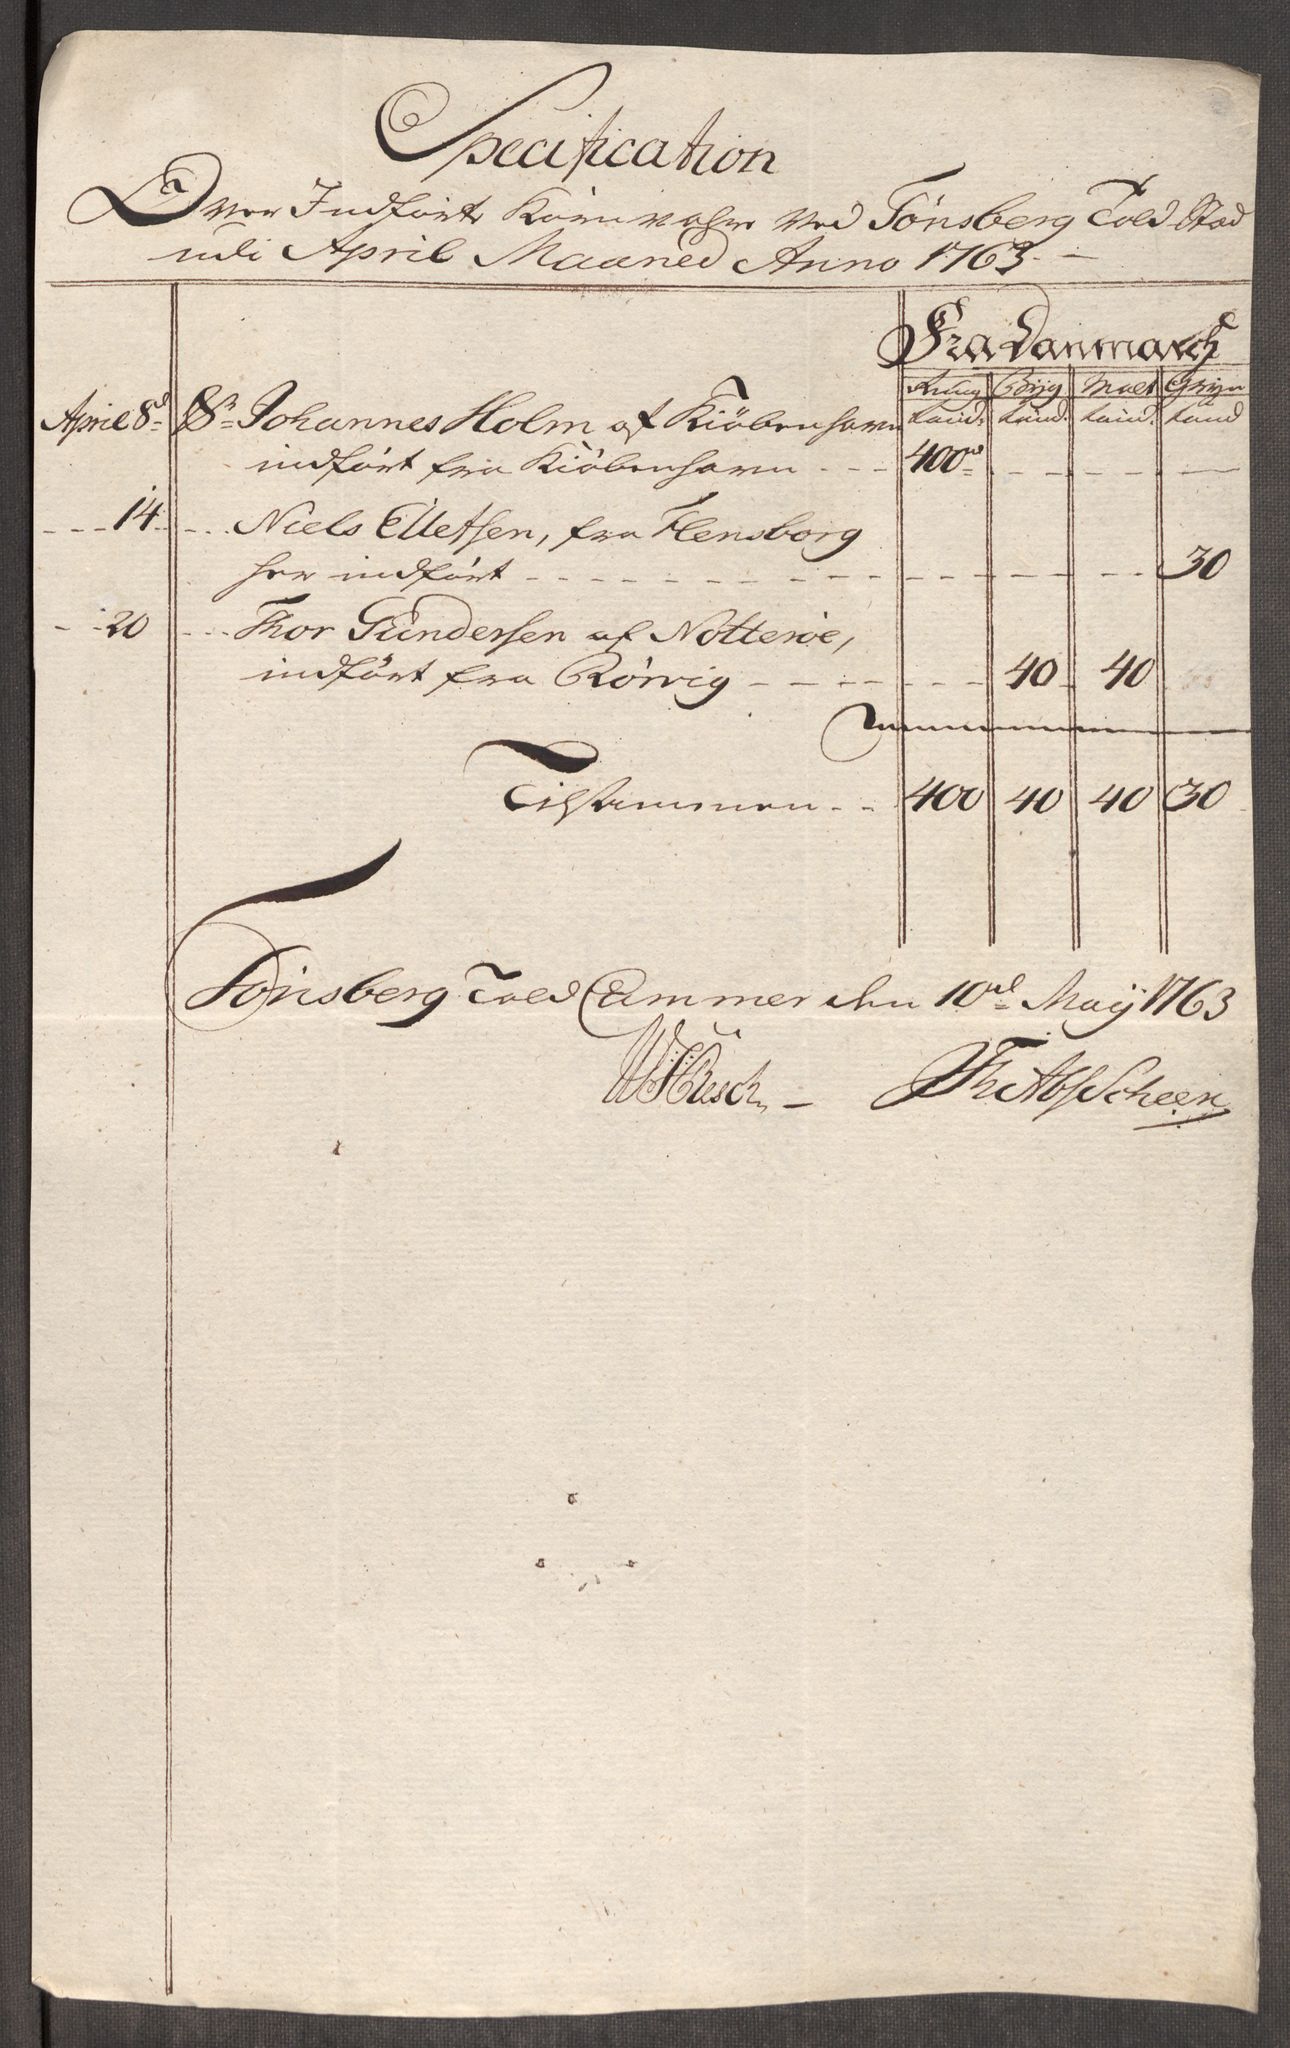 Specification
Over Indførte Kornvahre ved Tønsberg Told Stæd
udi April Maaned Anno 1763
Fra Danmarck
Rug Byg Malt Gryn
tønd. tønd. tønd. tønd
April 8d Sr Johannes Holm af Kiöbenhavn
indført fra Kiöbenhavn 400
14 Niels Elletsen, fra Flensborg
her indført 30
20 Thor Gundersen af Notteröe,
indført fra Rörvig 40 40
Tilsammen 400 40 40 30
Tönsberg Told Cammer den 10de Maÿ 1763